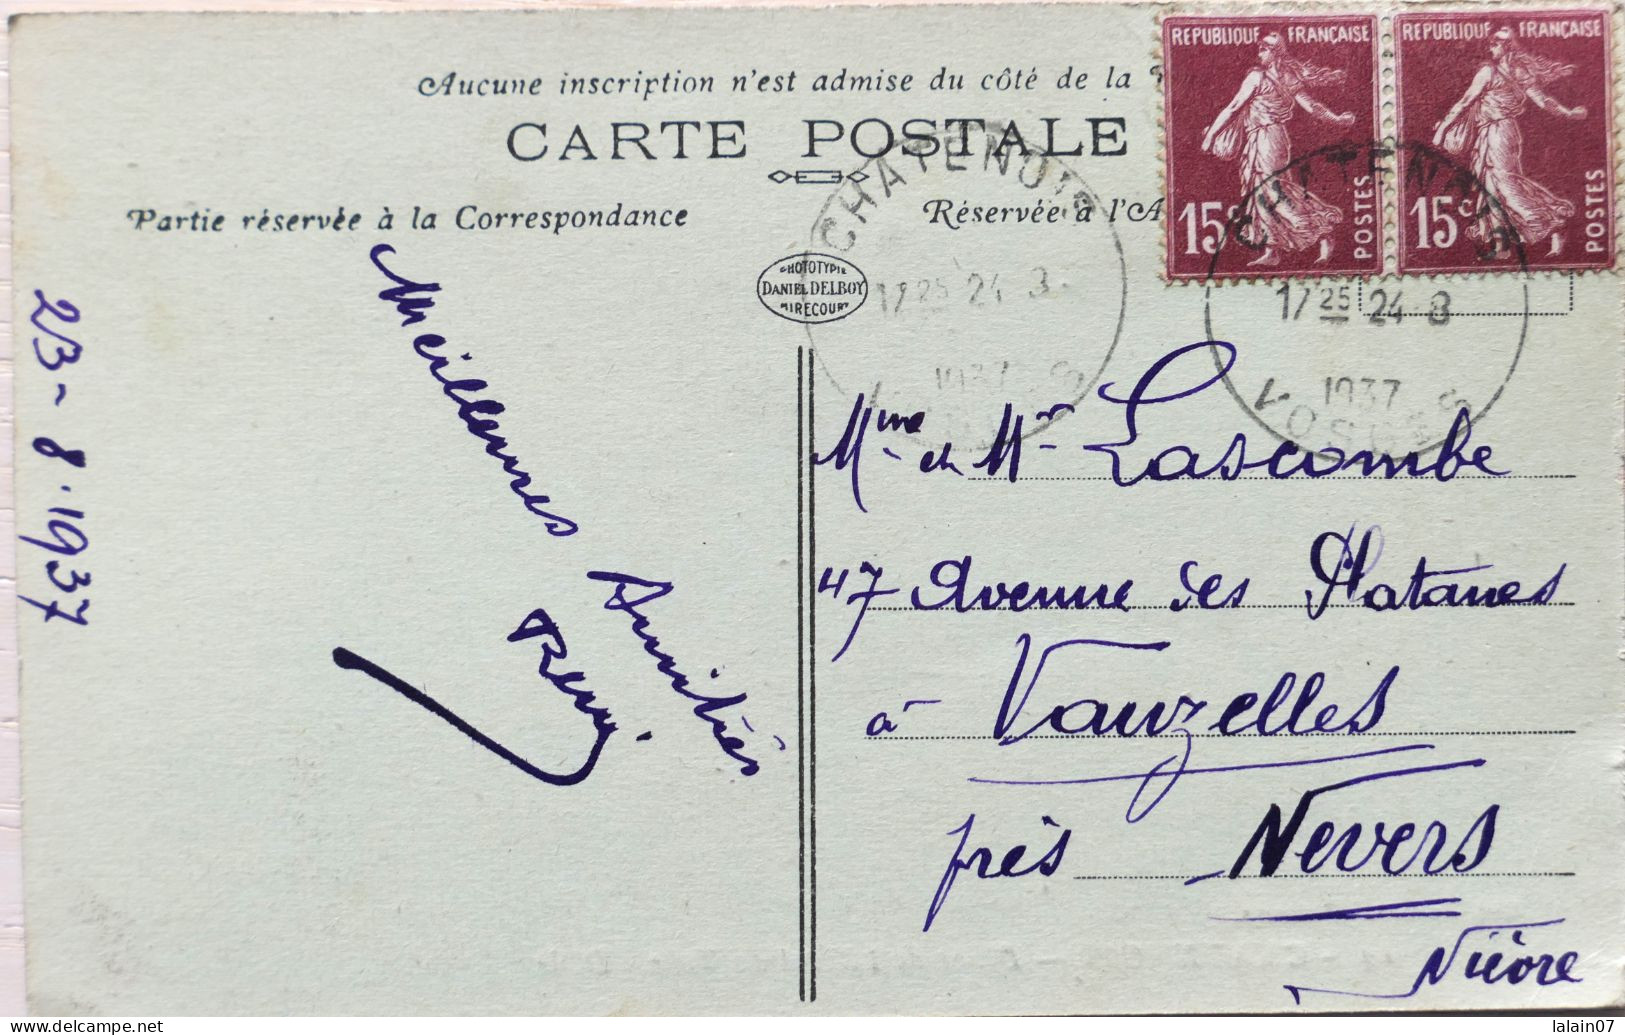 Aucune inscription n'est admise du côté de la
CARTE POSTALE
Partie réservée à la Correspondance
Réservée à l'A
REPUBLIQUE FRANÇAISE
15c
POSTES
REPUBLIQUE FRANÇAISE
15c
POSTES
CHATENOIS
17 25 24 8
1937
VOSGES
CHATENOIS
17 25 24 8
1937
VOSGES
PHOTOTYPIE
DANIEL DELBOY
MIRECOURT
23-8.1937
Meilleures Amitiés
Remi.
Mme et Mr Lascombe
47 Avenue des Platanes
à Vauzelles
près Nevers
Nièvre
lalain07